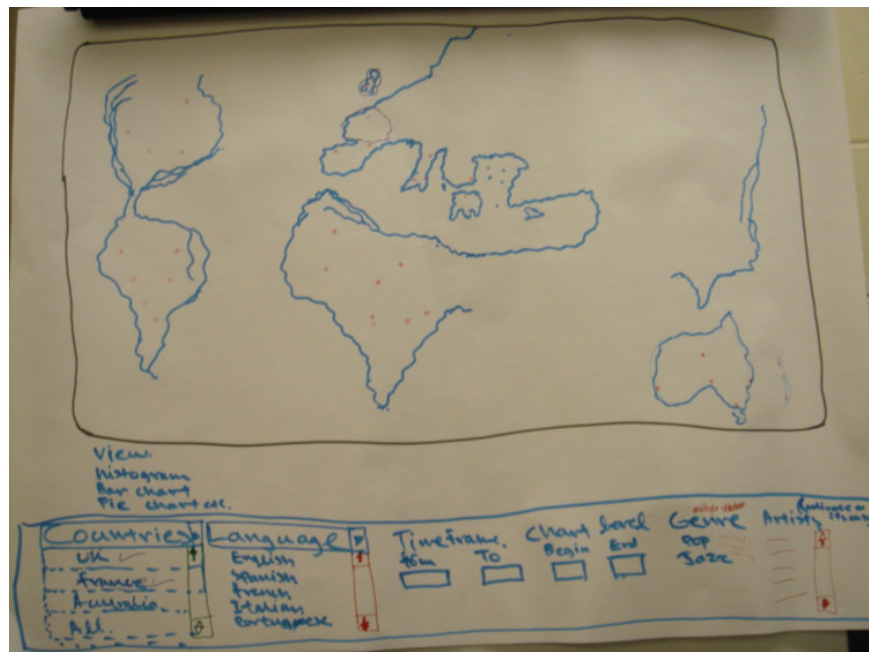 View.
Histogram
Bar chart
Pie chart etc.
Countries
UK
France
Australia
All.
Language
English
Spanish
French
Italian
Portuguese
Timeframe.
from
To
Chart level
Begin
End
Genre
Pop
Jazz
Artists